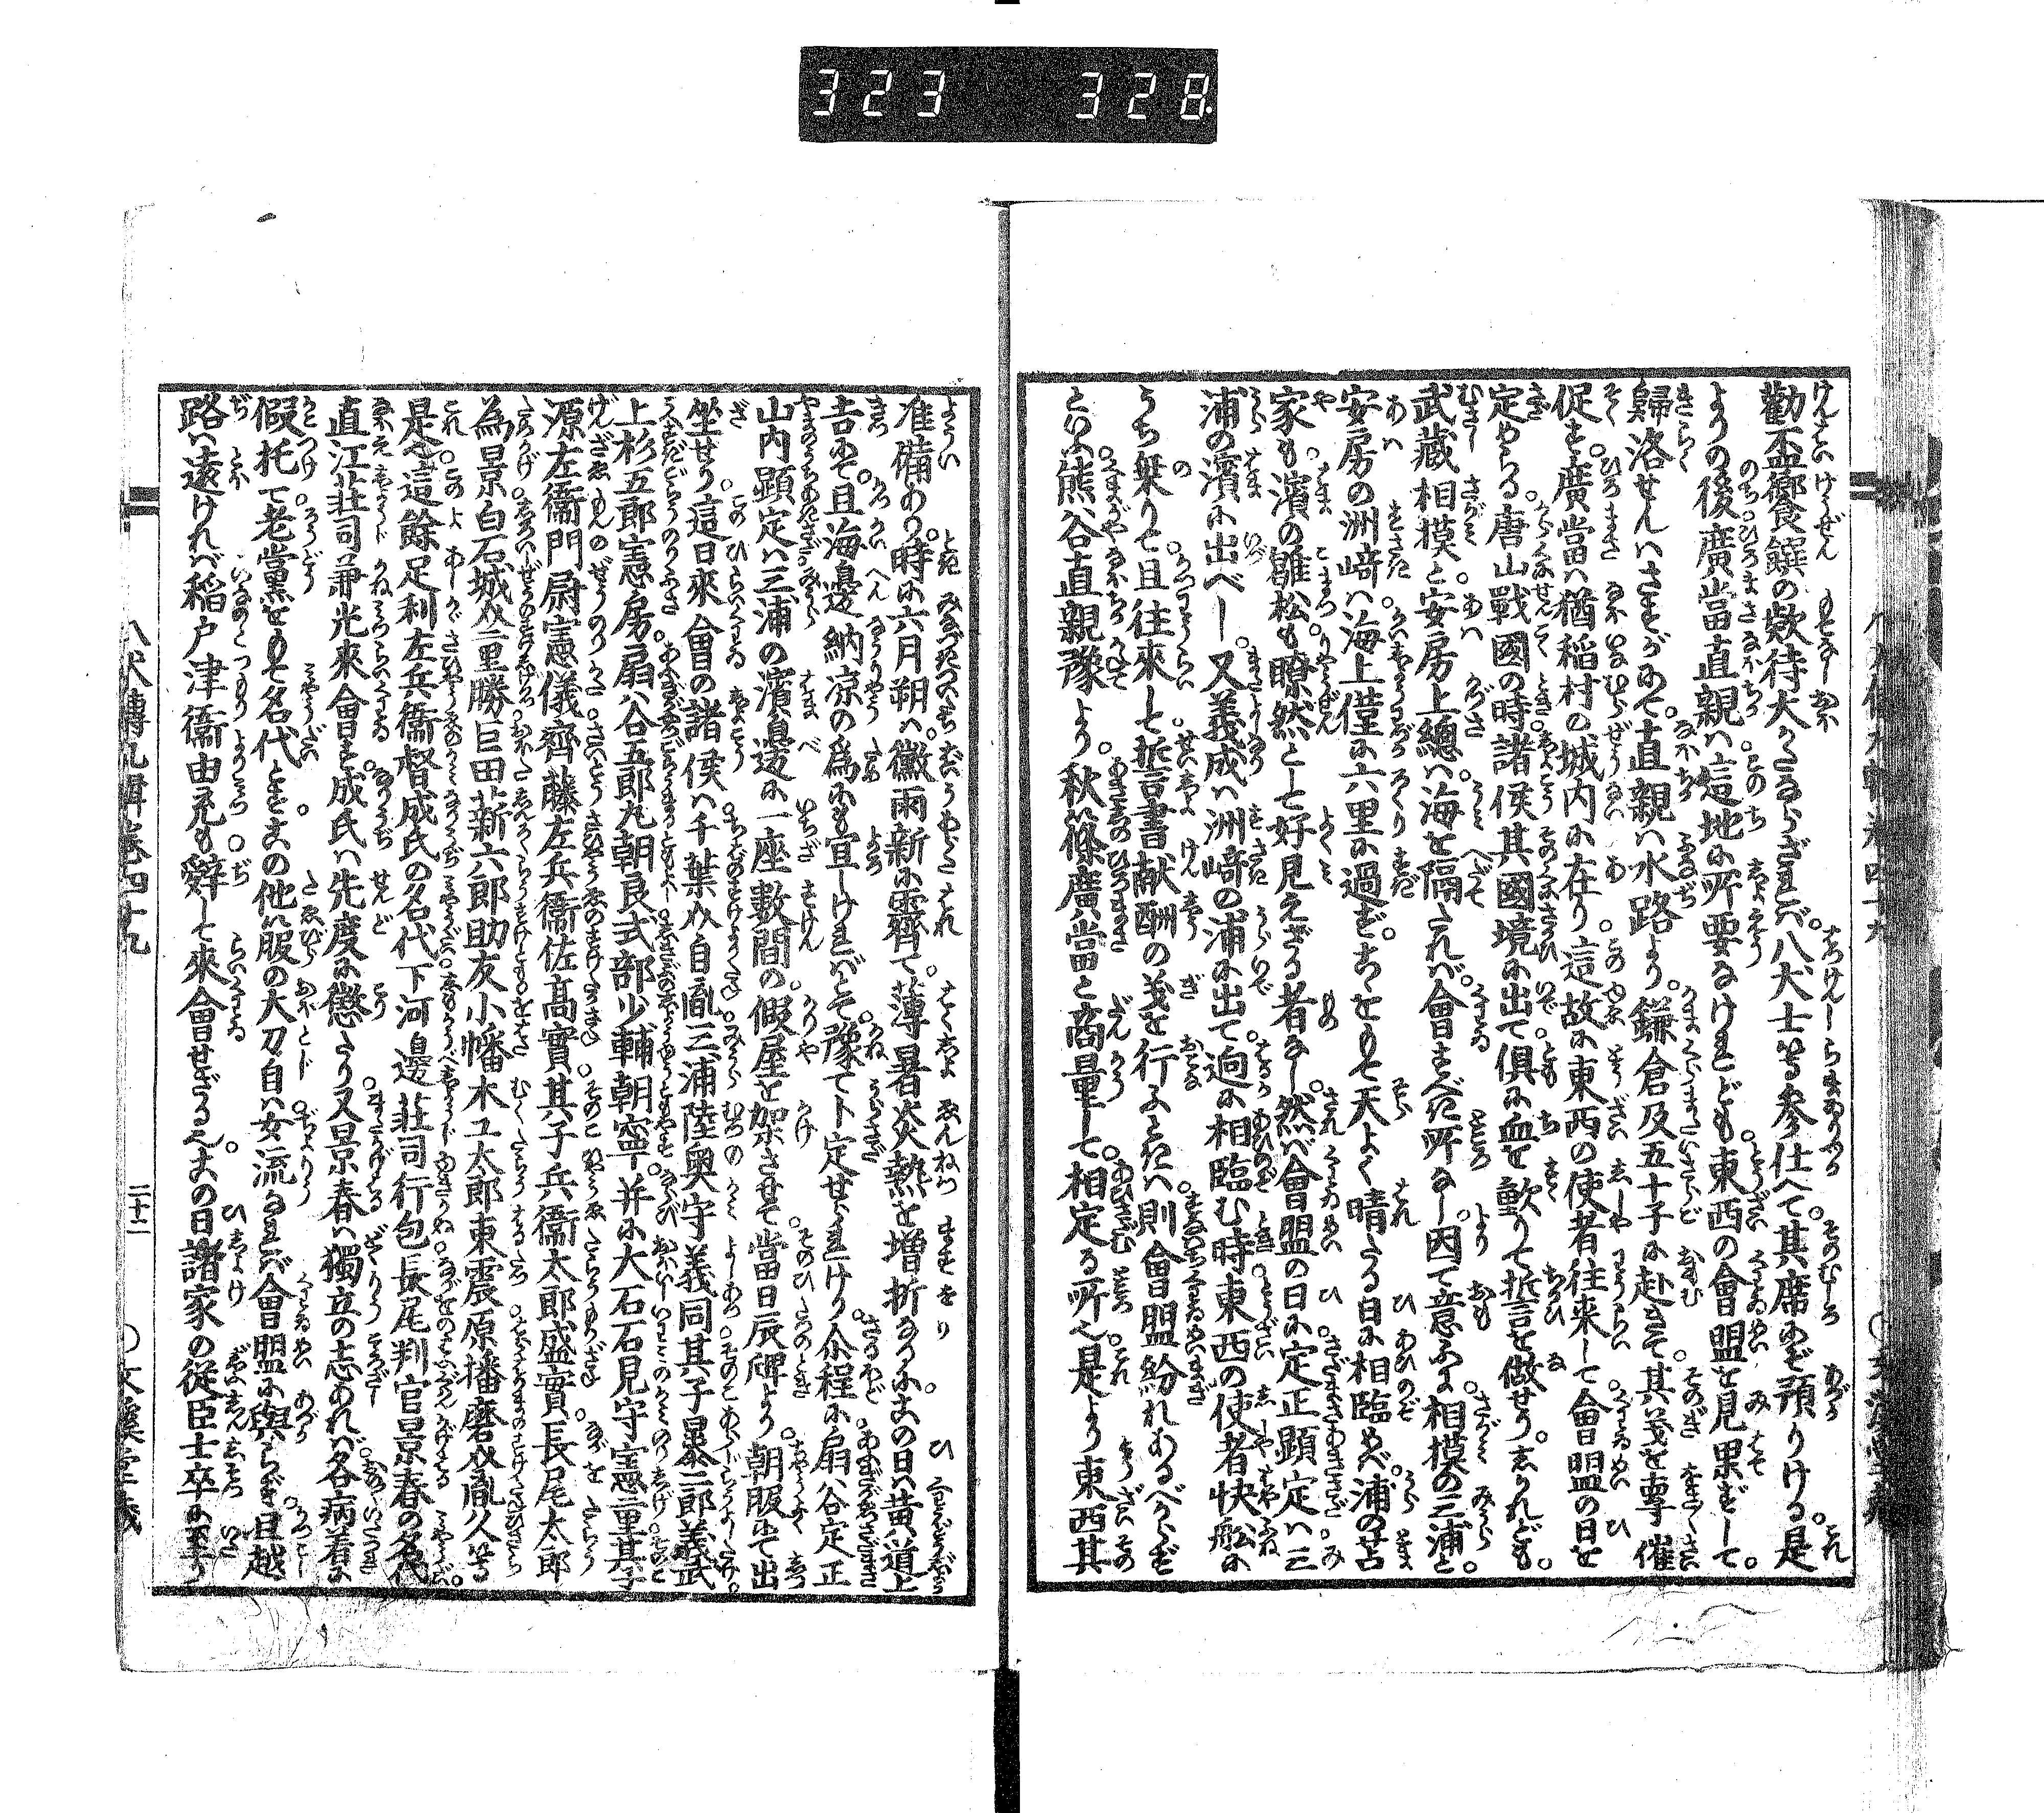 323 328
勸盃饗饌の欵待大かたならざれば。八犬士等參仕へて。其席にぞ預りける。是
よりの後。廣當直親は。這地に所要なけれども。東西の會盟を見果ずして。
歸洛せんはさすがにて。直親は水路より。鎌倉及五十子に赴きて。其義を專催
促す。廣當は猶稻村の城内に在り。這故に東西の使者往來して。會盟の日を
定めらる。唐山戰國の時。諸侯其國境に出て。俱に血を歃りて誓を做せり。しかれども。
武藏相摸と。安房上總は。海を隔たれば。會すべき所なし。因て意ふに。相模の三浦と。
安房の洲﨑は。海上僅に六里に過ず。こゝをもて天よく晴たる日に相臨めば。浦の苫
家も。濱の雛松も。瞭然として好見えざる者なし。然ば會盟の日に。定正顯定は。三
浦の濱に出べし。又義成は洲﨑の浦に出て。逈に相臨む時。東西の使者快船に
うち乘りて。且往來して。誓書献酬の義を行ふときは。則會盟紛れあるべからず
といふ。熊谷直親豫より。秋篠廣當と商量して。相定る所。是より東西其
准備あり。時に六月朔は。黴雨新に霽て。薄暑炎熱を増折なりに。この日は黄道上
吉にて。且海邊納凉の爲にも宜しければとて。豫てト定せられけり。尒程に扇谷定正
山内顯定は。三浦の濱邊に一座數間の。假屋を架させて。當日辰牌より。朝服にて出
坐せり。這日來會の諸侯は。千葉介自胤。三浦陸奥守義同。其子暴二郎義武。
上杉五郎憲房。扇谷五郎丸朝良。式部少輔朝寧。并に大石石見守憲重。其子
源左衞門尉憲儀。齋藤左兵衞佐髙實。其子兵衞太郎盛實。長尾太郎
為景。白石城介重勝。巨田薪六郎助友。小幡木工太郎東震。原播磨介胤久等
是也。這餘足利左兵衞督成氏の名代。下河邊莊司行包。長尾判官景春の名代。
直江莊司兼光來會す。成氏は先度に懲たり。又景春は獨立の志あれば。各病着に
假托て。老黨をもて名代とす。この他箙の大刀自は。女流なれば。會盟に與らず。且越
路は遠ければ。稻戸津衞由充も。辭して來會せざる也。この日諸家の從臣士卒に至り
八犬傳九輯卷四十九
二十二